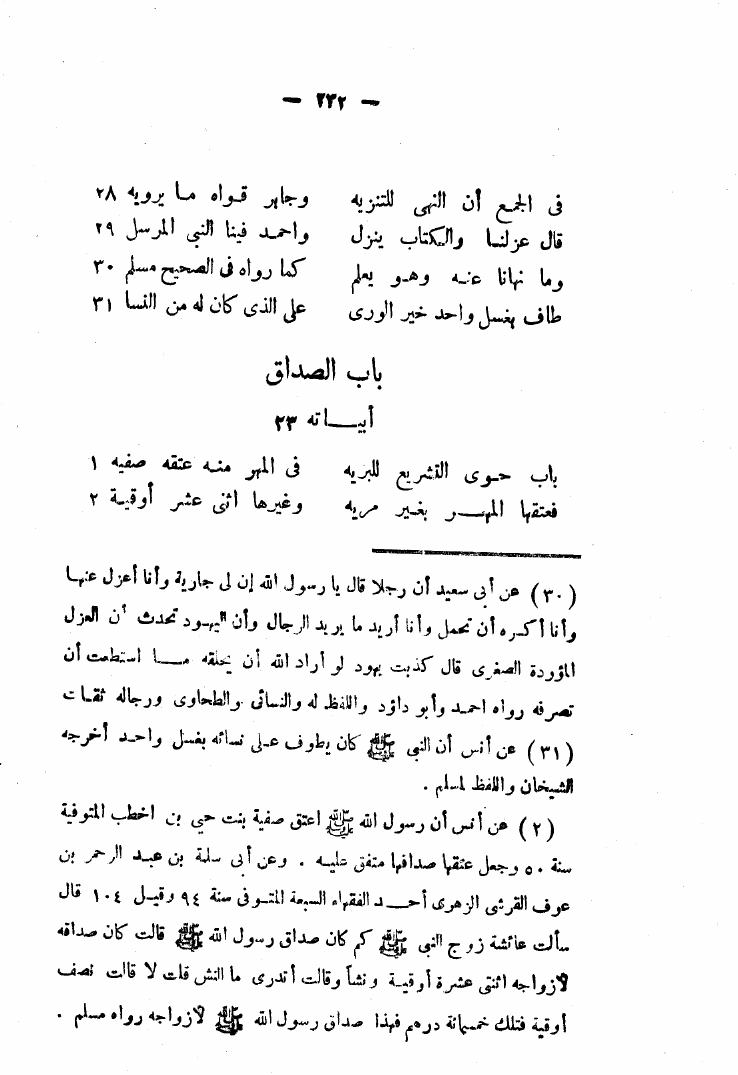 — ٢٣٢ —
فى الجمع أن النهى للتنزيه وجابر قواه ما يرويه ٢٨
قال عزلنا والكتاب ينزل واحمد فينا النبى المرسل ٢٩
وما نهانا عنه وهو يعلم كما رواه فى الصحيح مسلم ٣٠
طاف بغسل واحد خير الورى على الذى كان له من النسا ٣١
باب الصداق
أبياته ٢٣
باب حوى التشريع للبريه فى المهر منه عتقه صفيه ١
فعتقها المهر بغير مريه وغيرها اثنى عشر أوقية ٢
(٣٠) عن أبى سعيد أن رجلا قال يا رسول الله إن لى جارية وأنا أعزل عنها
وأنا أكره أن تحمل وأنا أريد ما يريد الرجال وأن اليهود تحدث أن العزل
المؤودة الصغرى قال كذبت يهود لو أراد الله أن يخلقه ما استطعت أن
تصرفه رواه احمد وأبو داؤد واللفظ له والنسائى والطحاوى ورجاله ثقات
(٣١) عن أنس أن النبى ﷺ كان يطوف على نسائه بغسل واحد أخرجه
الشيخان واللفظ لمسلم .
(٢) عن أنس أن رسول الله ﷺ اعتق صفية بنت حيي بن اخطب المتوفية
سنة ٥٠ وجعل عتقها صداقها متفق عليه . وعن أبى سلمة بن عبد الرحمن بن
عوف القرشى الزهرى أحد الفقهاء السبعة المتوفى سنة ٩٤ وقيل ١٠٤ قال
سألت عائشة زوج النبى ﷺ كم كان صداق رسول الله ﷺ قالت كان صداقه
لازواجه اثنتى عشرة أوقية ونشأ وقالت أتدرى ما النش قلت لا قالت نصف
أوقية فتلك خمسمائة درهم فهذا صداق رسول الله ﷺ لازواجه رواه مسلم .